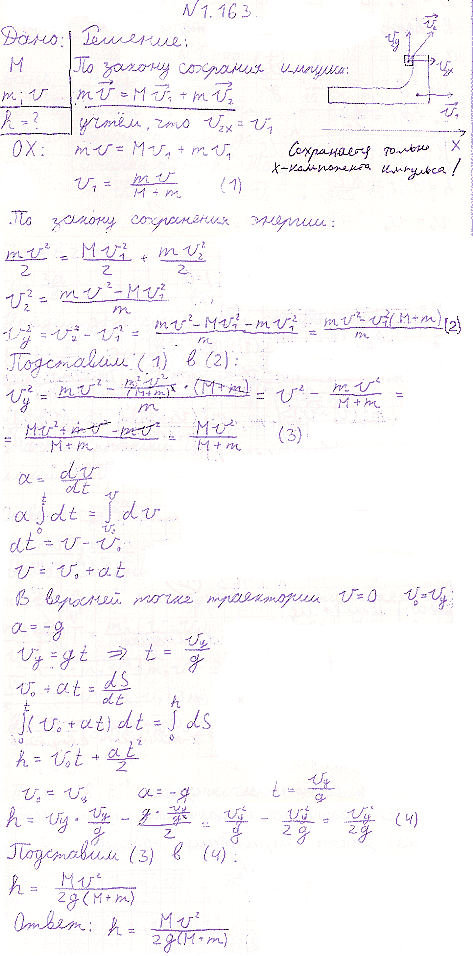 №1.163.
Дано: Решение:
M По закону сохрания импульса:
m; v mv⃗ = Mv⃗₁ + mv⃗₂
h = ? учтём, что v₂ₓ = v₁
OX: mv = Mv₁ + mv₁
v₁ = mv / (M + m) (1)
v_y v⃗₂
vₓ
v⃗₁
X
Сохраняется только
X-компонента импульса!
По закону сохранения энергии:
mv²/2 = Mv₁²/2 + mv₂²/2
v₂² = (mv² - Mv₁²)/m
v_y² = v₂² - v₁² = (mv² - Mv₁² - mv₁²)/m = (mv² - v₁²(M+m))/m (2)
Подставим (1) в (2):
v_y² = (mv² - m²v²/(M+m)² · (M+m))/m = v² - mv²/(M+m) =
= (Mv² + mv² - mv²)/(M+m) = Mv²/(M+m) (3)
a = dv/dt
a ∫₀ᵗ dt = ∫_{v₀}^{v} dv
at = v - v₀
v = v₀ + at
В верхней точке траектории v = 0 v₀ = v_y:
a = -g
v_y = gt ⇒ t = v_y/g
v₀ + at = dS/dt
∫₀ᵗ (v₀ + at) dt = ∫₀ʰ dS
h = v₀t + at²/2
v₀ = v_y a = -g t = v_y/g
h = v_y · v_y/g - (g · v_y²/g²)/2 = v_y²/g - v_y²/2g = v_y²/2g (4)
Подставим (3) в (4):
h = Mv²/(2g(M+m))
Ответ: h = Mv²/(2g(M+m))